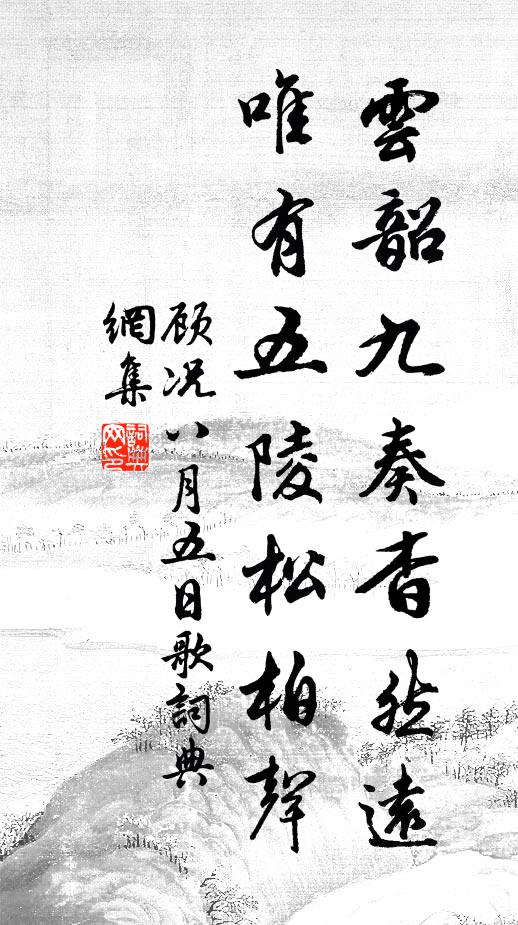 雲韶九奏杳然遠
唯有五陵松柏聲
顾况 八月五日歌詞典
網集
詞典
网印